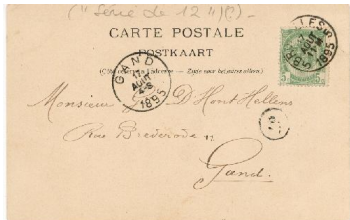 ("Série de 12")(?)
CARTE POSTALE
POSTKAART
(Côté réservé à l'adresse. — Zijde voor het adres alleen.)
GAND
AOUT
1895
BRUXELLES
AOUT
1895
5 5
Monsieur D'Hont Hellens
Rue Brederode 12
Gand.